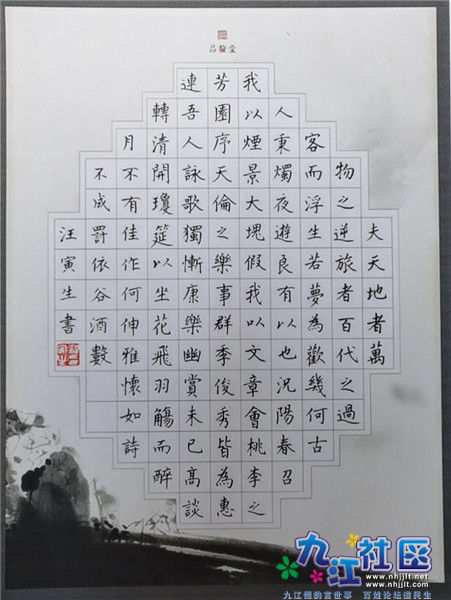 品翰堂
夫天地者萬
物之逆旅者百代之過
客而浮生若夢為歡幾何古
人秉燭夜遊良有以也況陽春召
我以煙景大塊假我以文章會桃李之
芳園序天倫之樂事群季俊秀皆為惠
連吾人詠歌獨慚康樂幽賞未已高談
轉清開瓊筵以坐花飛羽觴而醉
月不有佳作何伸雅懷如詩
不成罰依谷酒數
汪寅生書
九江社区
www.nhjjlt.net
www.nhjjlt.com